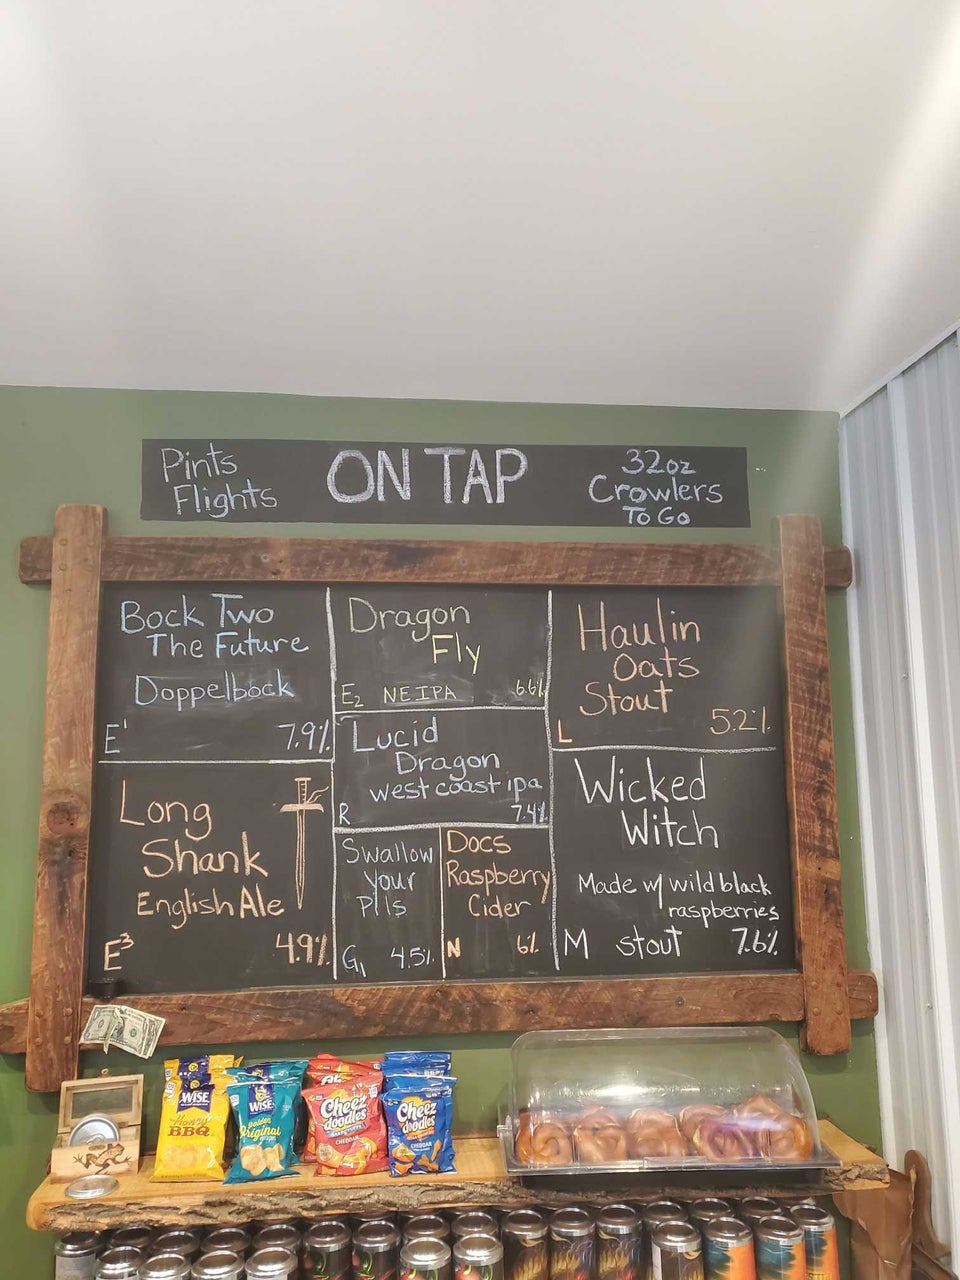 Pints
Flights
ON TAP
32oz
Crowlers
To Go
Bock Two
The Future
Doppelbock
E1 7.9%
Dragon
Fly
E2 NEIPA 6.6%
Haulin
Oats
Stout
L 5.2%
Lucid
Dragon
west coast ipa
R 7.4%
Long
Shank
English Ale
E3 4.9%
Swallow
Your
Pils
G1 4.5%
Docs
Raspberry
Cider
N 6%
Wicked
Witch
Made w/ wild black
raspberries
M stout 7.6%
WISE
Honey
BBQ
WISE
Golden
Original
Cheez
doodles
CHEDDAR
Cheez
doodles
CHEDDAR